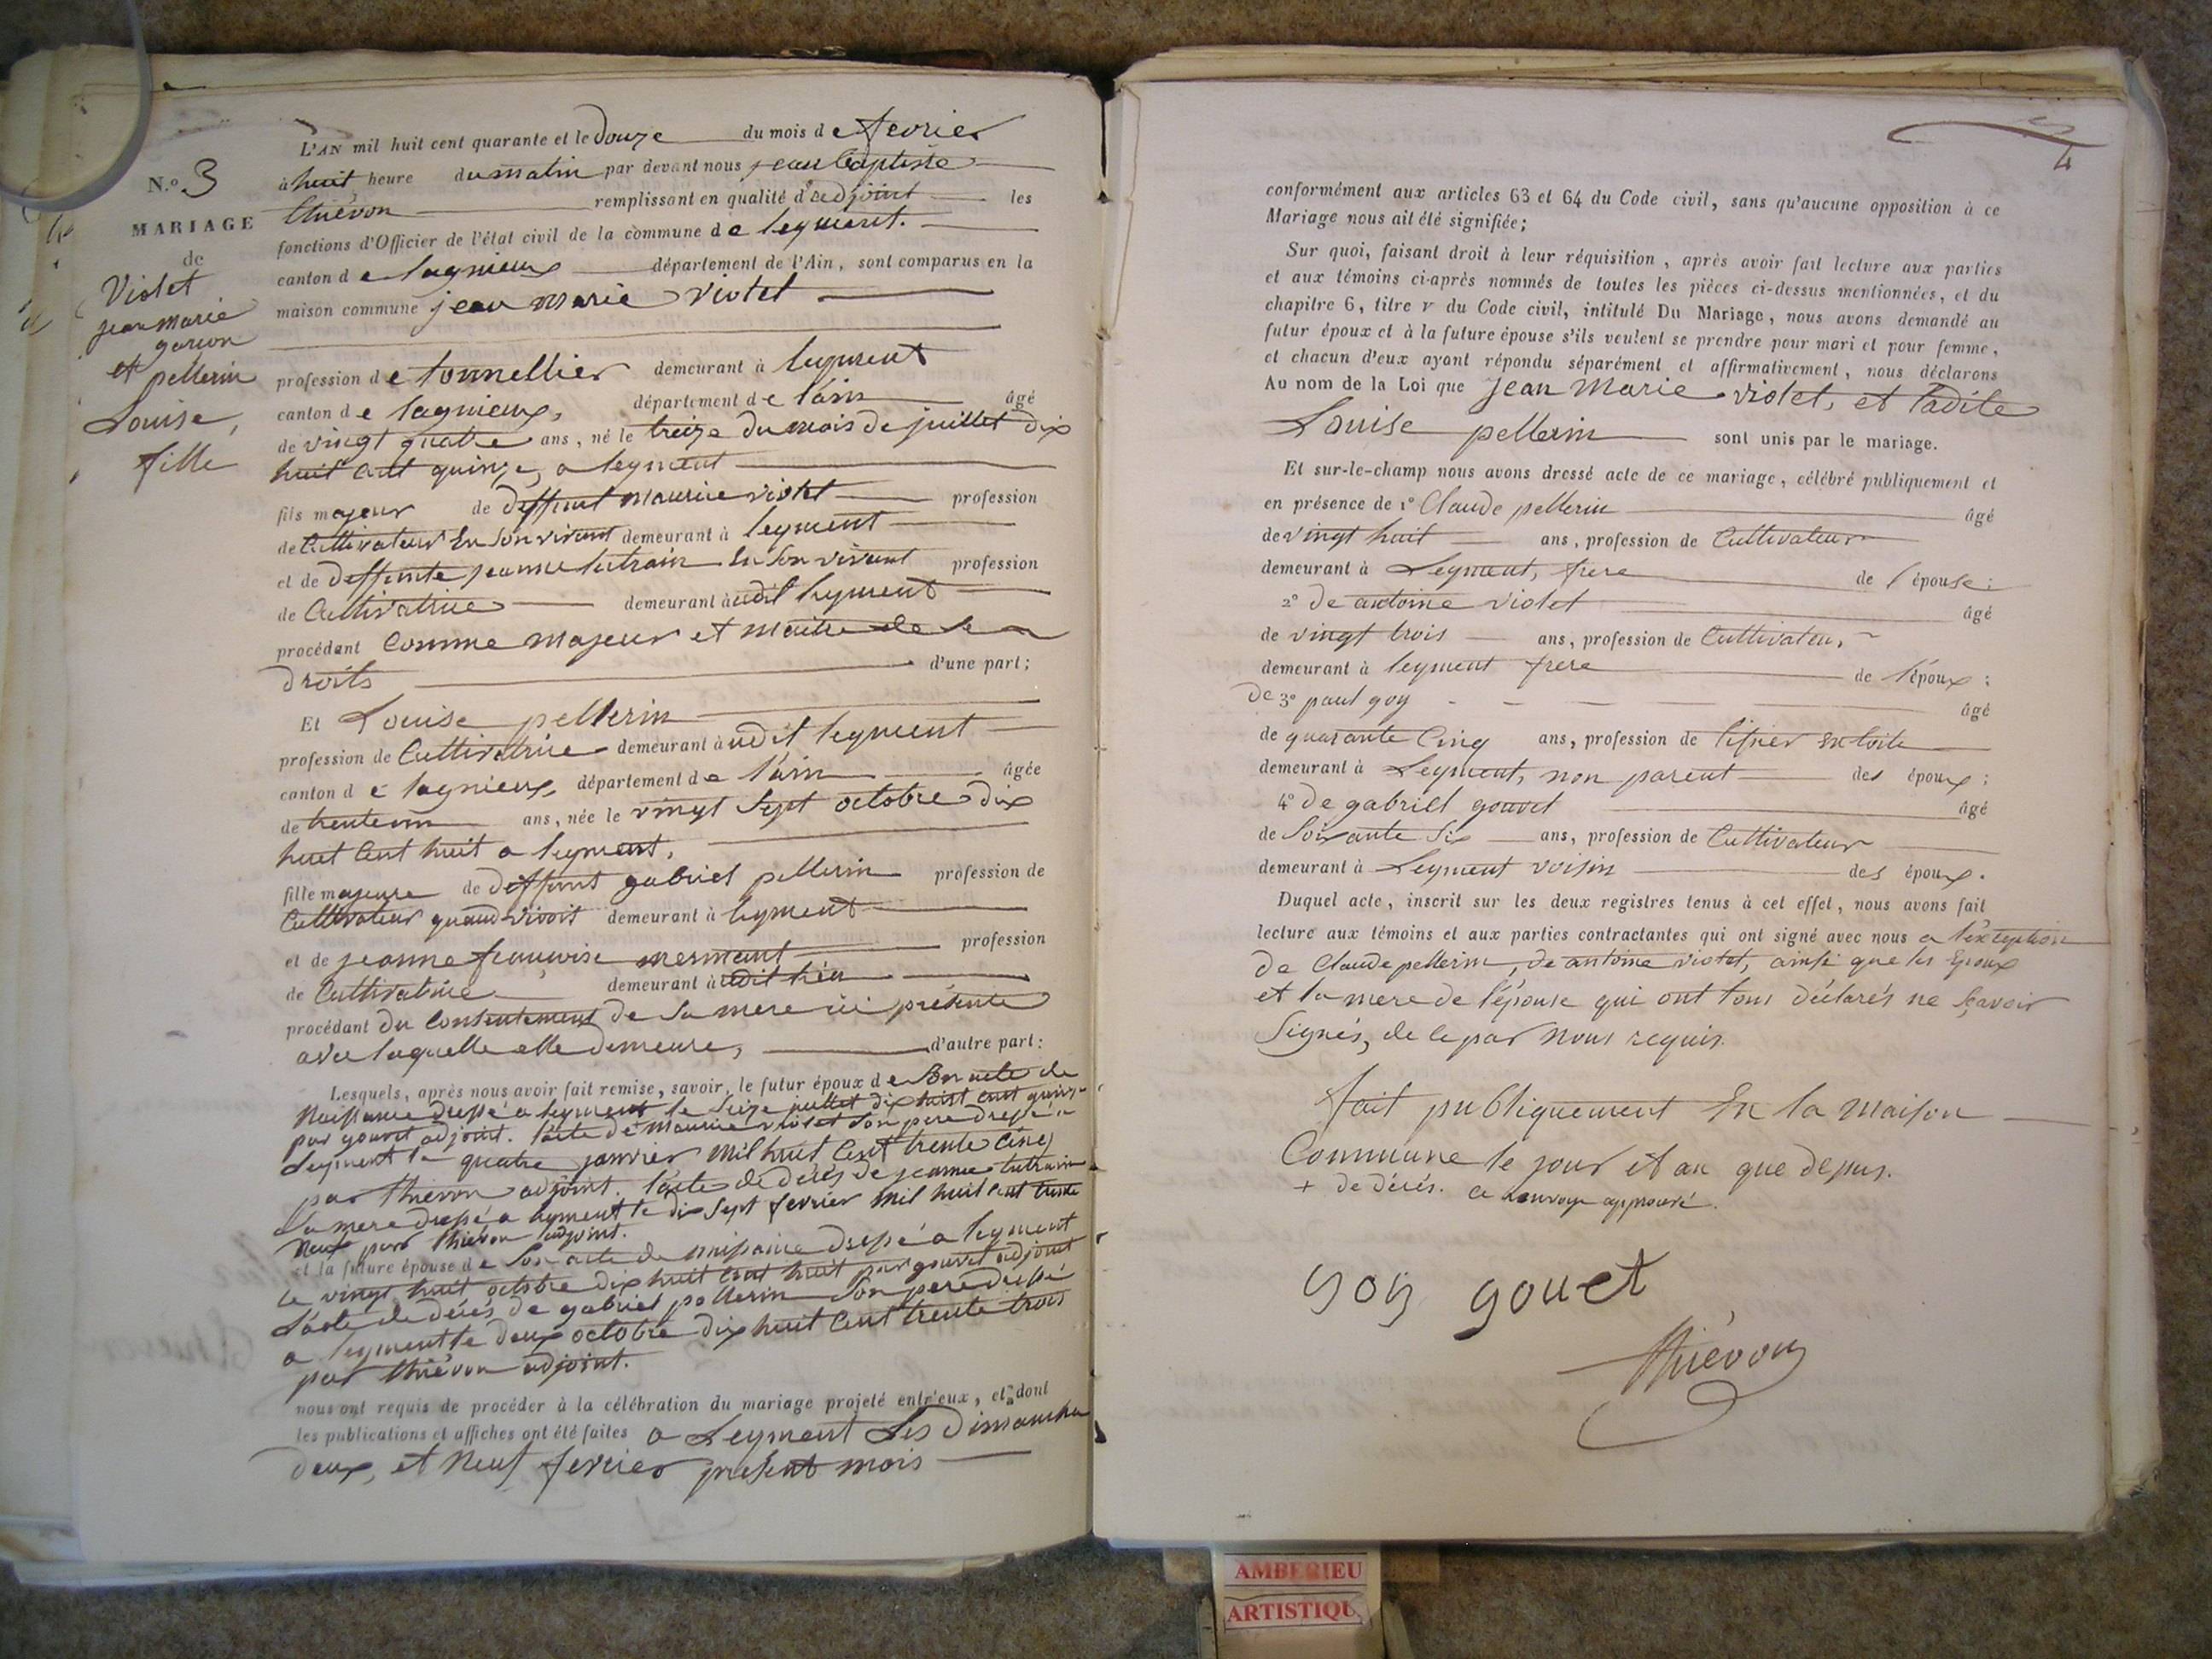 N.o 3
MARIAGE
de
Violet
jean marie
garcon
et pellerin
Louise,
fille
L'AN mil huit cent quarante et le douze du mois de fevrier
à huit heure du matin par devant nous jean baptiste
thiévon remplissant en qualité d'adjoint les
fonctions d'Officier de l'état civil de la commune de leyment.
canton de lagnieux département de l'Ain, sont comparus en la
maison commune jean marie violet
profession de tonnellier demeurant à leyment
canton de lagnieux, département de l'ain âgé
de vingt quatre ans, né le treize du mois de juillet dix
huit cent quinze, a leyment
fils majeur de deffunt maurice violet profession
de Cultivateur En Son vivant demeurant à leyment
et de deffunte jeanne lutrain En Son vivant profession
de Cultivatrice demeurant à udit leyment
procédant Comme majeur et maitre de se
droits d'une part;
Et Louise pellerin
profession de Cultivatrice demeurant à udit leyment
canton de lagnieux, département de l'ain âgée
de trente un ans, née le vingt Sept octobre dix
huit Cent huit a leyment,
fille majeure de deffunt gabriel pellerin profession de
Cultivateur quand vivoit demeurant à leyment
et de jeanne francoise mermant profession
de Cultivatrice demeurant à udit lieu
procédant du Consentement de Sa mere ici présente
avec laquelle elle demeure, d'autre part:
Lesquels, après nous avoir fait remise, savoir, le futur époux de Son acte de
Naissance dressé a leyment le Seize juillet dix huit cent quinze
par gouvet adjoint. l'acte de maurice violet Son pere dressé a
Leyment le quatre janvier mil huit Cent trente Cinq
par thievon adjoint. l'acte de décés de jeanne lutrain
Sa mere dressé a leyment le dix Sept fevrier mil huit cent trente
Neuf par thiévon adjoint.
et la future épouse de Son acte de naissance dressé a leyment
le vingt huit octobre dix huit cent huit par gouvet adjoint
L'acte de décés de gabriel pellerin Son pere dressé
a leyment le deux octobre dix huit Cent trente trois
par thiévon adjoint.
nous ont requis de procéder à la célébration du mariage projeté entr'eux, et dont
les publications et affiches ont été faites a Leyment Les Dimanche
deux, et Neuf fevrier présent mois
4
conformément aux articles 63 et 64 du Code civil, sans qu'aucune opposition à ce
Mariage nous ait été signifiée;
Sur quoi, faisant droit à leur réquisition, après avoir fait lecture aux parties
et aux témoins ci-après nommés de toutes les pièces ci-dessus mentionnées, et du
chapitre 6, titre v du Code civil, intitulé Du Mariage, nous avons demandé au
futur époux et à la future épouse s'ils veulent se prendre pour mari et pour femme,
et chacun d'eux ayant répondu séparément et affirmativement, nous déclarons
Au nom de la Loi que jean Marie violet, et ladite
Louise pellerin sont unis par le mariage.
Et sur-le-champ nous avons dressé acte de ce mariage, célébré publiquement et
en présence de 1° Claude pellerin âgé
de vingt huit ans, profession de Cultivateur
demeurant à Leyment, frere de l'épouse:
2° de antoine violet âgé
de vingt trois ans, profession de Cultivateur
demeurant à leyment frere de l'époux:
de 3° paul goy âgé
de quarante Cinq ans, profession de tisier En toile
demeurant à Leyment, non parent des époux:
4° de gabriel gouvet âgé
de Soixante Six ans, profession de Cultivateur
demeurant à Leyment voisin des époux.
Duquel acte, inscrit sur les deux registres tenus à cet effet, nous avons fait
lecture aux témoins et aux parties contractantes qui ont signé avec nous a l'éxception
de Claude pellerin, de antoine violet, ainsi que les Epoux
et la mere de l'épouse qui ont tous déclarés ne sçavoir
Signés, de ce par nous requis.
fait publiquement En la maison
Commune le jour et an que depus.
+ de décés. ce renvoye approuvé.
goy gouet
thiévon
AMBERIEU
ARTISTIQU